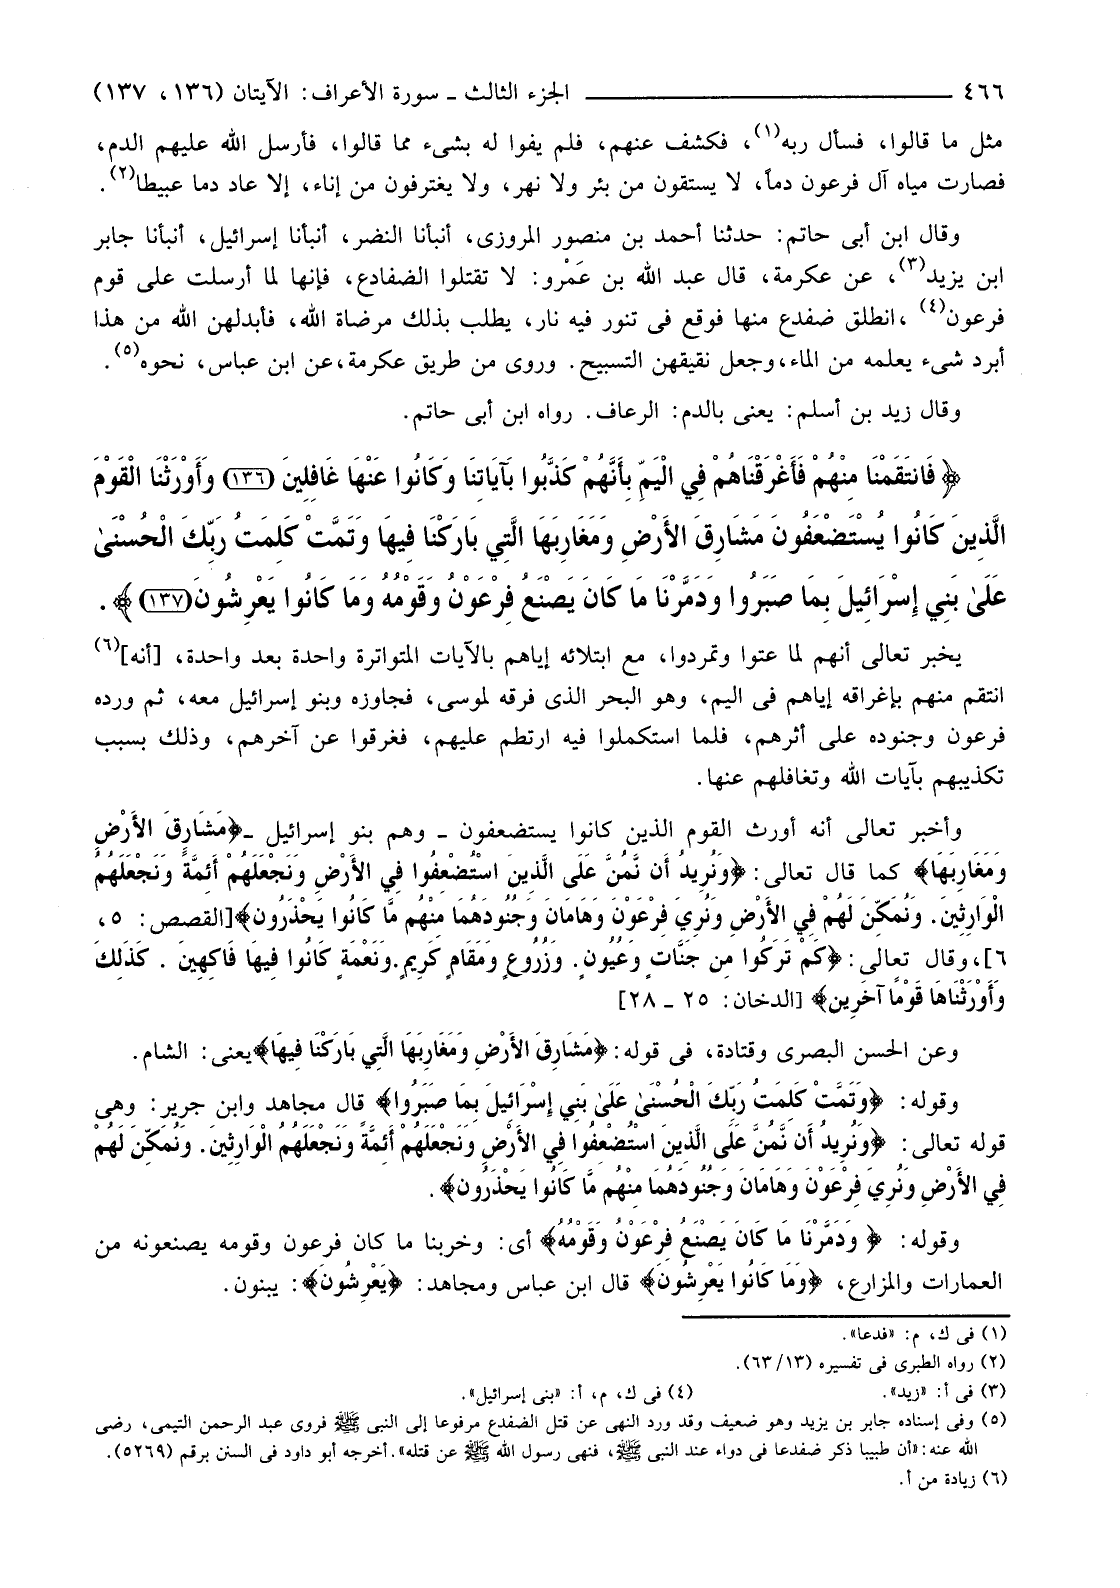 ٤٦٦ ـــــــــ الجزء الثالث ـ سورة الأعراف: الآيتان (١٣٦، ١٣٧)
مثل ما قالوا، فسأل ربه(١)، فكشف عنهم، فلم يفوا له بشىء مما قالوا، فأرسل الله عليهم الدم،
فصارت مياه آل فرعون دماً، لا يستقون من بئر ولا نهر، ولا يغترفون من إناء، إلا عاد دما عبيطا(٢).
وقال ابن أبى حاتم: حدثنا أحمد بن منصور المروزى، أنبأنا النضر، أنبأنا إسرائيل، أنبأنا جابر
ابن يزيد(٣)، عن عكرمة، قال عبد الله بن عَمْرو: لا تقتلوا الضفادع، فإنها لما أرسلت على قوم
فرعون(٤) ،انطلق ضفدع منها فوقع فى تنور فيه نار، يطلب بذلك مرضاة الله، فأبدلهن الله من هذا
أبرد شىء يعلمه من الماء،وجعل نقيقهن التسبيح. وروى من طريق عكرمة،عن ابن عباس، نحوه(٥).
وقال زيد بن أسلم: يعنى بالدم: الرعاف. رواه ابن أبى حاتم.
﴿ فَانتَقَمْنَا مِنْهُمْ فَأَغْرَقْنَاهُمْ فِي الْيَمِّ بِأَنَّهُمْ كَذَّبُوا بِآيَاتِنَا وَكَانُوا عَنْهَا غَافِلِينَ (١٣٦) وَأَوْرَثْنَا الْقَوْمَ
الَّذِينَ كَانُوا يُسْتَضْعَفُونَ مَشَارِقَ الأَرْضِ وَمَغَارِبَهَا الَّتِي بَارَكْنَا فِيهَا وَتَمَّتْ كَلِمَتُ رَبِّكَ الْحُسْنَىٰ
عَلَىٰ بَنِي إِسْرَائِيلَ بِمَا صَبَرُوا وَدَمَّرْنَا مَا كَانَ يَصْنَعُ فِرْعَوْنُ وَقَوْمُهُ وَمَا كَانُوا يَعْرِشُونَ(١٣٧) ﴾.
يخبر تعالى أنهم لما عتوا وتمردوا، مع ابتلائه إياهم بالآيات المتواترة واحدة بعد واحدة، [أنه](٦)
انتقم منهم بإغراقه إياهم فى اليم، وهو البحر الذى فرقه لموسى، فجاوزه وبنو إسرائيل معه، ثم ورده
فرعون وجنوده على أثرهم، فلما استكملوا فيه ارتطم عليهم، فغرقوا عن آخرهم، وذلك بسبب
تكذيبهم بآيات الله وتغافلهم عنها.
وأخبر تعالى أنه أورث القوم الذين كانوا يستضعفون ـ وهم بنو إسرائيل ـ﴿مَشَارِقَ الأَرْضِ
وَمَغَارِبَهَا﴾ كما قال تعالى: ﴿وَنُرِيدُ أَن نَّمُنَّ عَلَى الَّذِينَ اسْتُضْعِفُوا فِي الأَرْضِ وَنَجْعَلَهُمْ أَئِمَّةً وَنَجْعَلَهُمُ
الْوَارِثِينَ. وَنُمَكِّنَ لَهُمْ فِي الأَرْضِ وَنُرِيَ فِرْعَوْنَ وَهَامَانَ وَجُنُودَهُمَا مِنْهُم مَّا كَانُوا يَحْذَرُون﴾[القصص: ٥،
٦]،وقال تعالى: ﴿كَمْ تَرَكُوا مِن جَنَّاتٍ وَعُيُونٍ. وَزُرُوعٍ وَمَقَامٍ كَرِيمٍ.وَنَعْمَةٍ كَانُوا فِيهَا فَاكِهِينَ . كَذَلِكَ
وَأَوْرَثْنَاهَا قَوْمًا آخَرِين﴾ [الدخان: ٢٥ ـ ٢٨]
وعن الحسن البصرى وقتادة، فى قوله: ﴿مَشَارِقَ الأَرْضِ وَمَغَارِبَهَا الَّتِي بَارَكْنَا فِيهَا﴾يعنى: الشام.
وقوله: ﴿وَتَمَّتْ كَلِمَتُ رَبِّكَ الْحُسْنَىٰ عَلَىٰ بَنِي إِسْرَائِيلَ بِمَا صَبَرُوا﴾ قال مجاهد وابن جرير: وهى
قوله تعالى: ﴿وَنُرِيدُ أَن نَّمُنَّ عَلَى الَّذِينَ اسْتُضْعِفُوا فِي الأَرْضِ وَنَجْعَلَهُمْ أَئِمَّةً وَنَجْعَلَهُمُ الْوَارِثِينَ. وَنُمَكِّنَ لَهُمْ
فِي الأَرْضِ وَنُرِيَ فِرْعَوْنَ وَهَامَانَ وَجُنُودَهُمَا مِنْهُم مَّا كَانُوا يَحْذَرُون﴾.
وقوله: ﴿ وَدَمَّرْنَا مَا كَانَ يَصْنَعُ فِرْعَوْنُ وَقَوْمُهُ﴾ أى: وخربنا ما كان فرعون وقومه يصنعونه من
العمارات والمزارع، ﴿وَمَا كَانُوا يَعْرِشُونَ﴾ قال ابن عباس ومجاهد: ﴿يَعْرِشُونَ﴾: يبنون.
(١) فى ك، م: «فدعا».
(٢) رواه الطبرى فى تفسيره (٦٣/١٣).
(٣) فى أ: «زيد». (٤) فى ك، م، أ: «بنى إسرائيل».
(٥) وفى إسناده جابر بن يزيد وهو ضعيف وقد ورد النهى عن قتل الضفدع مرفوعا إلى النبى ﷺ فروى عبد الرحمن التيمى، رضى
الله عنه:«أن طبيبا ذكر ضفدعا فى دواء عند النبى ﷺ، فنهى رسول الله ﷺ عن قتله».أخرجه أبو داود فى السنن برقم (٥٢٦٩).
(٦) زيادة من أ.